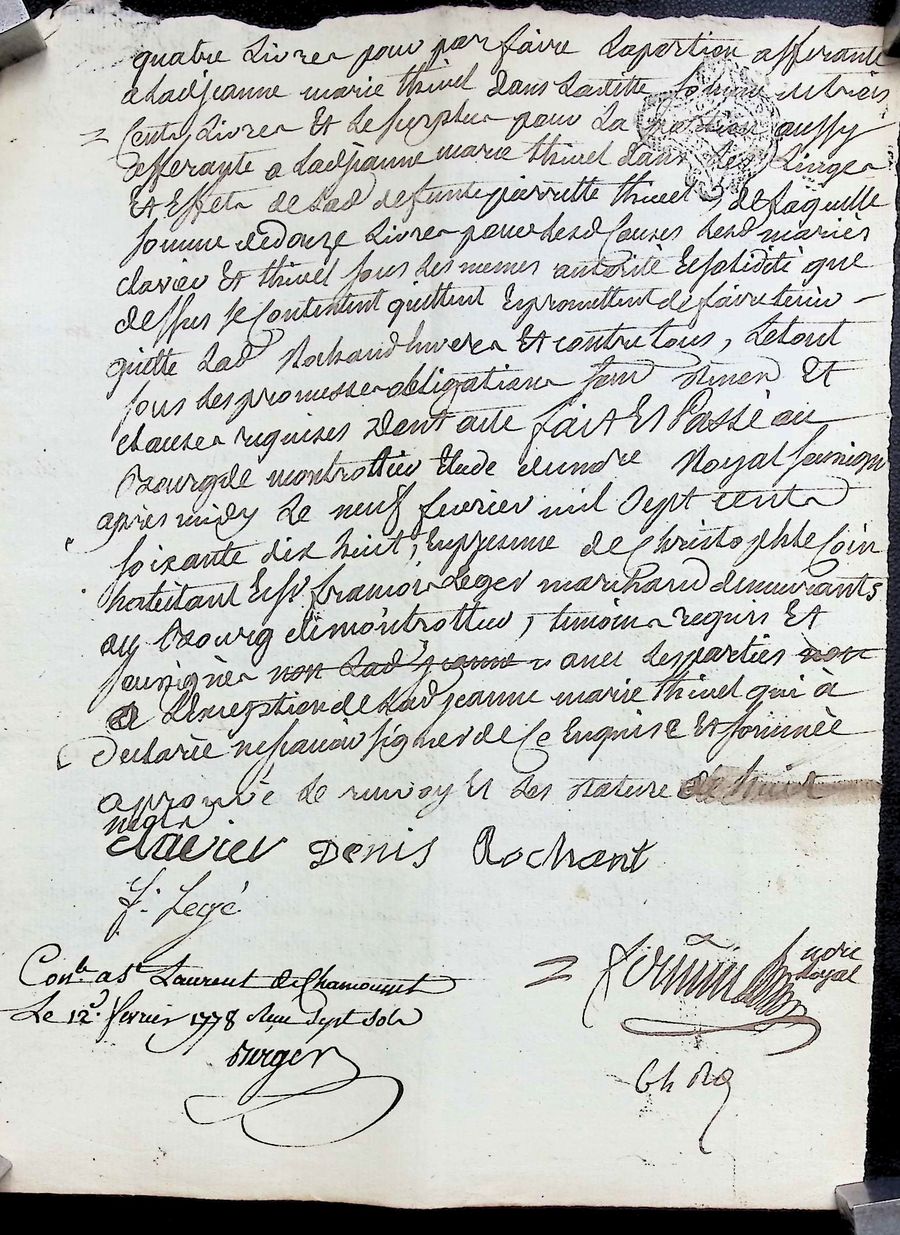 quatre Livres pour parfaire Laportion afferante
a Ladjeanne marie thivel dans Laditte somme de trois
Cents Livres Et Le surplus pour La portion aussy
afferante a Ladjeanne marie thivel dans Les Linges
Et Effets de Lad defunte pierrette thivel, de Laquelle
somme de douze Livres pour lesd Causes Lesd mariés
clavier Et thivel sous Les memes autorité Et solidité que
dessus se Contentent quittent Et promettent de faire tenir
quitte Lad Rochand Envers Et contre tous, Letout
sous Les promesses obligations Et
clauses requises Dont acte fait Et Passé au
Bourg de montrottier Etude du nore Royal soussigné
après midy Le neuf fevrier mil Sept cents
soixante dix huit, En presence de Christophle Coin
habitant Et sr francois Leger marchand demeurants
au Bourg de montrottier, temoins requis Et
sousignés non Lad jeanne avec Les parties non
a L'exception de Lad jeanne marie thivel qui a
Declarée ne scavoir signer de Ce Enquise Et sommée
aprouvé Le renvoy Et Les rature de huit
mots
clavier Denis Rochant
f. Legé
nore
Royal
Conle a St Laurent de Chamousset
Le 12e fevrier 1778 Reçu Sept sols